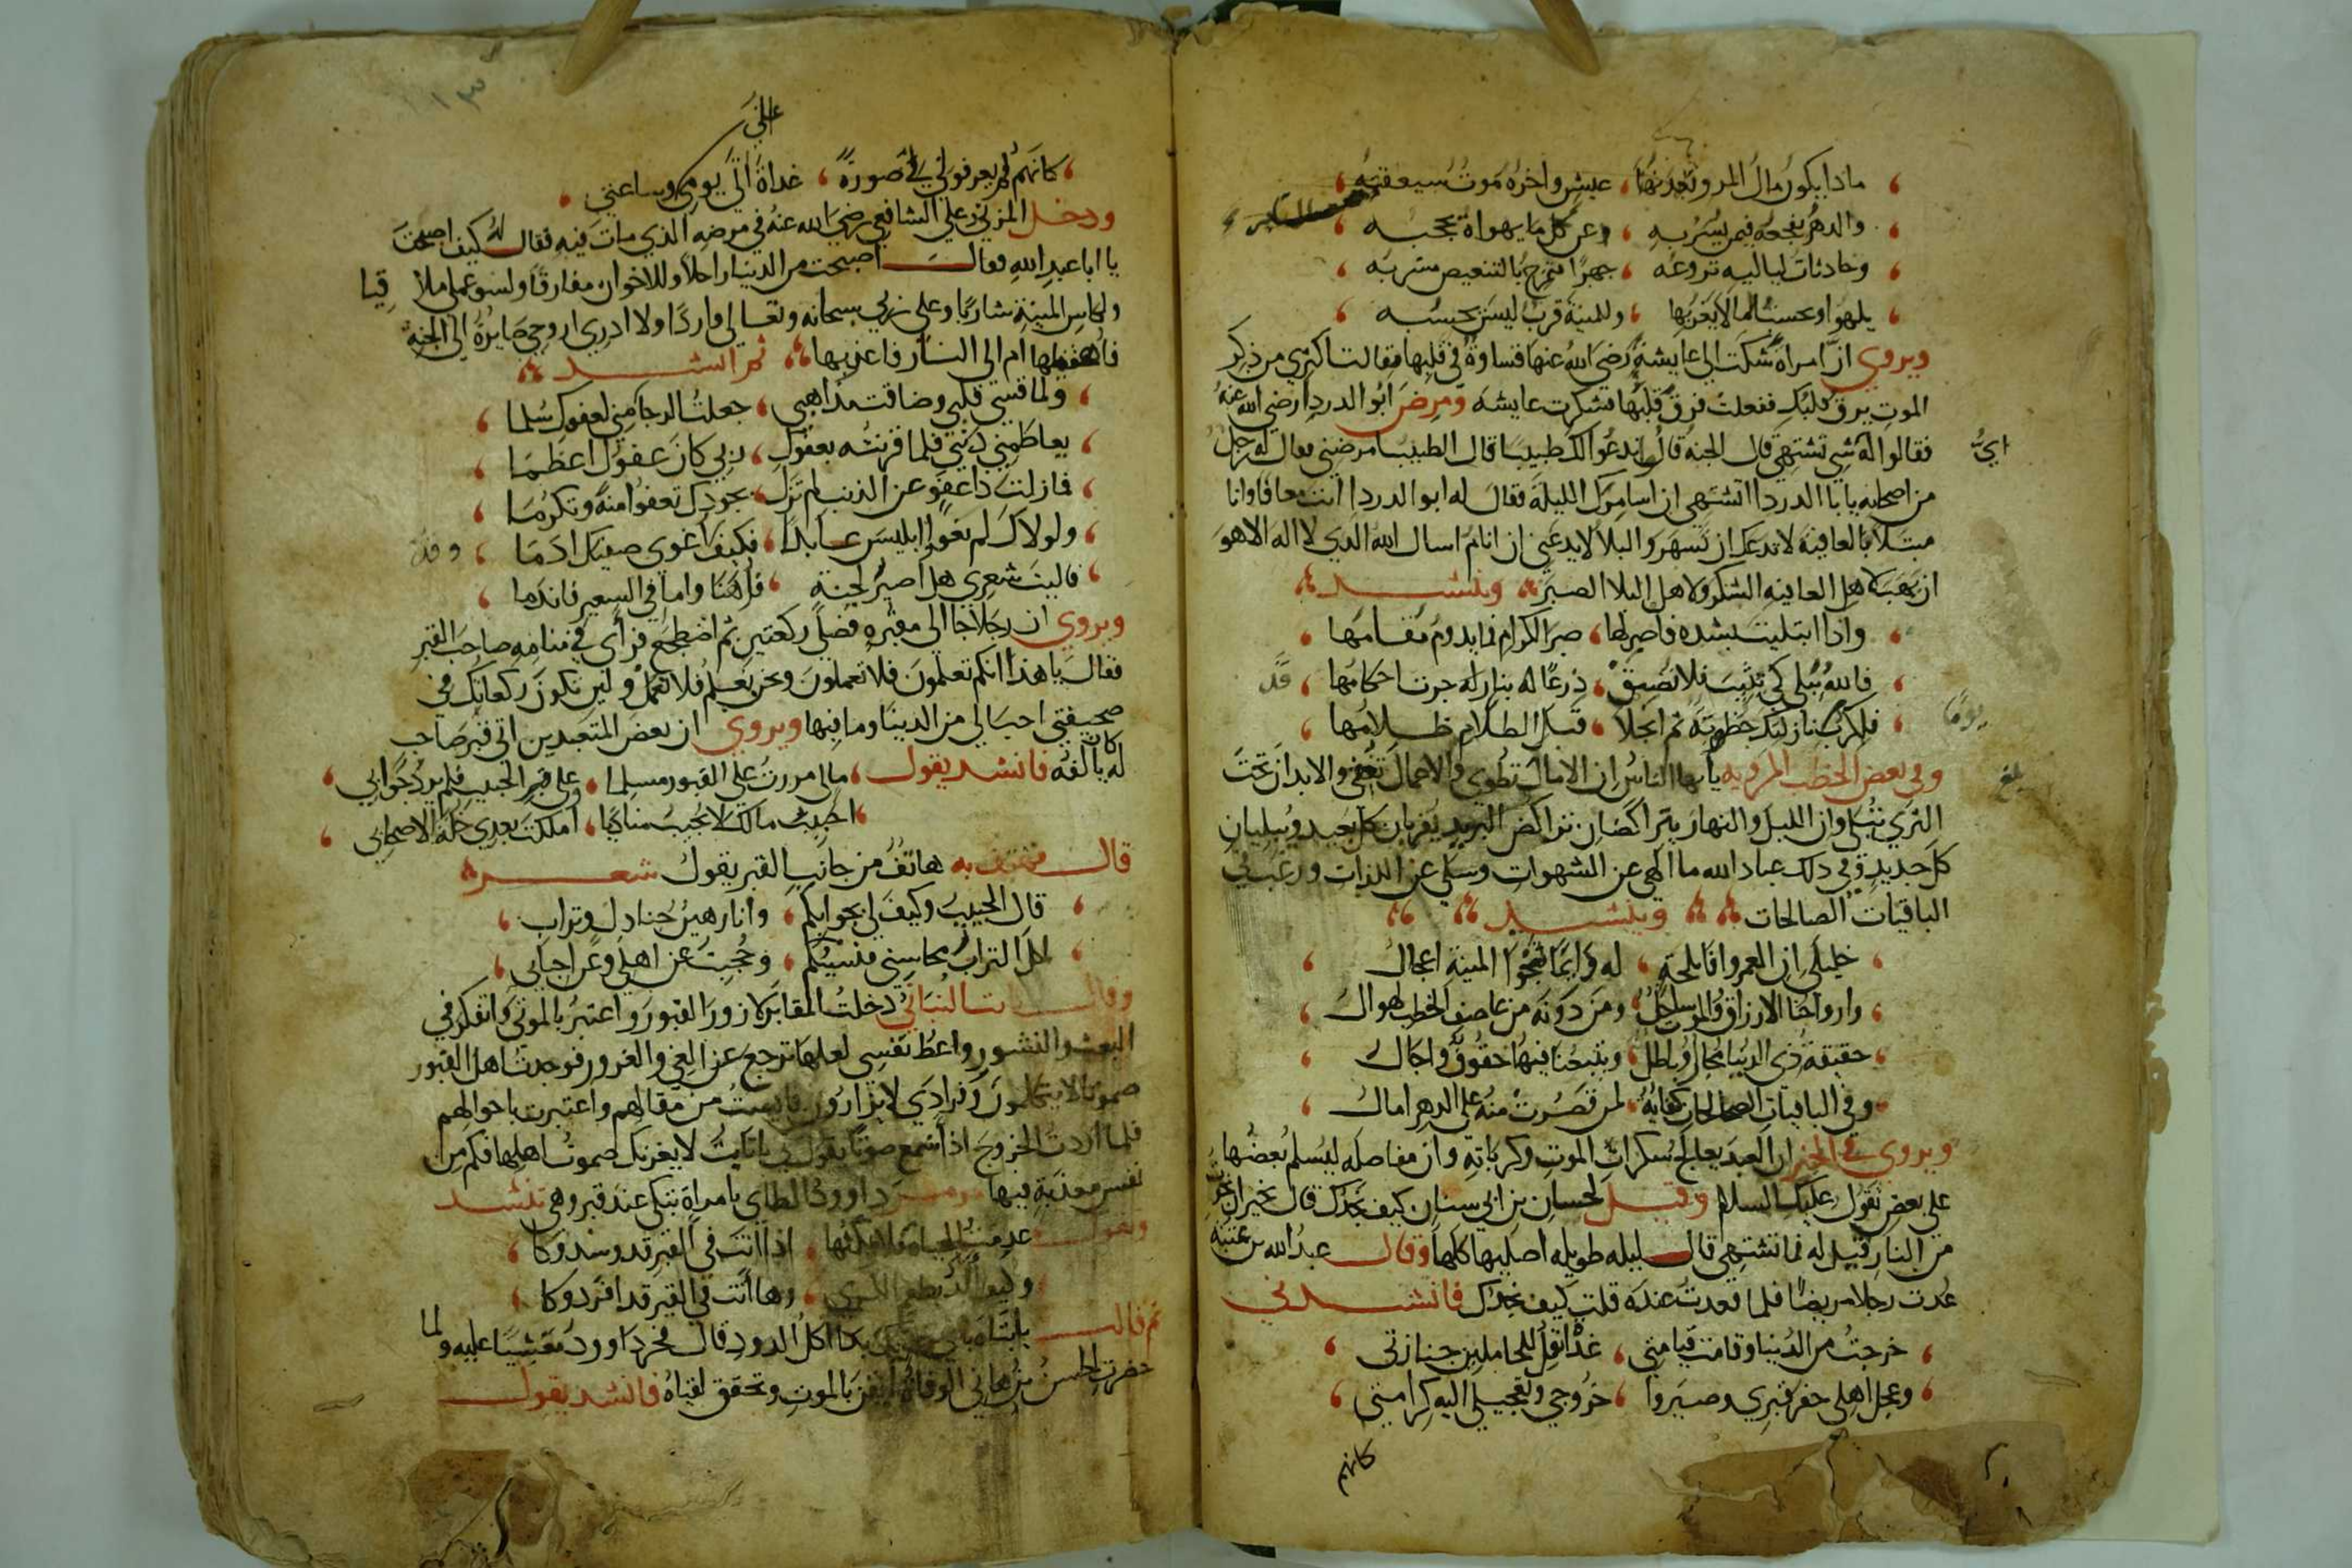 ماذا يكون مال المرء ولعدتها ، عيش واخره موت سيعقبه
والدهر يفجعه فيمن يسر به ، وعن كل ما يهواه يحجبه
وحادثات لياليه تروعه ، جهرًا تمزج بالتنغيص مشربه
يلهوا ويحسب ، وللمنية قرب ليس يحسبه
ويروى ان امراة شكت الى عايشة رضي الله عنها قساوة في قلبها فقالت اكثري من ذكر
الموت يرق قلبك ففعلت فرق قلبها فشكرت عايشه ومرض ابو الدرداء رضي الله عنه
اي
فقالوا له شي تشتهي قال الجنة قالوا ندعوا لك طبيبا قال الطبيب امرضني فقال له رجل
من اصحابه يا با الدردا اتشتهي ان اسامرك الليلة فقال له ابو الدردا انت معافا وانا
مبتلا فالعافية لا تدعك ان تسهر والبلا لا يدعني ان انام اسال الله الذي لا اله الا هو
ان يهب لاهل العافيه الشكر ولاهل البلا الصبر وينشد
واذا ابتليت بشده فاصبر لها ، صبر الكرام فما يدوم مقامها
فالله يبلي كي يثيب فلا تضيق ، ذرعًا له بنازلة جرت احكامها
يومًا
ثم انجلا ، قبل الظلام ظلامها
وفي بعض الخطب المرويه يا ايها الناس ان الامال تطوى والاعمال تفنى والابدان تحت
بلغ
الثرى تبلى وان الليل والنهار يتراكضان تراكض البريد يقربان كل بعيد ويبليان
كل جديد وفي ذلك عباد الله ما الهى عن الشهوات وسلى عن اللذات ورغب في
الباقيات الصالحات وينشد
خليلي ان العمر واف بلحة ، له وانما نحو المنية اعجال
وارواحنا الارزاق والموت ساحل ، ومن دونه من عاصف الخطب اهوال
حقيقة ذي الدنيا مجاز وباطل ، ويتبعنا فيها حقوق واجال
وفي الباقيات الصالحات كفاية ، لمن قصرت منه على الدهر امال
ويروى في الخبر ان العبد يعالج سكرات الموت وكرباته وان مفاصله ليسلم بعضها
على بعض تقول عليك السلام وقيل لحسان بن ابي سنان كيف تجدك قال بخير ان نجوت
من النار قيل له فما تشتهي قال ليله طويله اصليها كلها وقال عبد الله بن عتبة
عدت رجلا مريضا فلما قعدت عنده قلت كيف تجدك فانشدني
خرجت من الدنيا وقامت قيامتي ، غداة اقل الحاملين جنازتي
وعجل اهلي حفر قبري وصيروا ، خروجي وتعجيلي اليه كرامتي
كانهم
علي
كانهم لم يعرفوني في صورة ، غداة اتى يومي وساعتي
ودخل المزني على الشافعي رضي الله عنه في مرضه الذي مات فيه فقال له كيف اصبحت
يا ابا عبد الله فقال اصبحت من الدنيا راحلا وللاخوان مفارقًا ولسوء عملي ملاقيا
ولكاس المنية شاربًا وعلى ربي سبحانه وتعالى واردًا ولا ادري اروحي صايرة الى الجنة
فاهنيها ام الى النار فاعزيها ثم انشد
ولما قسى قلبي وضاقت مذاهبي ، جعلت الرجا مني لعفوك سلما
تعاظمني ذنبي فلما قرنته بعفوك ، ربي كان عفوك اعظما
فما زلت ذا عفو عن الذنب لم تزل ، بجودك تعفوا منة وتكرما
ولولاك لم يغوا ابليس عابدًا ، فكيف اغوى صفيك ادما
فاليت شعري هل اصير لجنة ، فاهنا واما في السعير فاندما
ويروى ان رجلا جا الى مقبره فصلى ركعتين ثم اضطجع فراى في منامه صاحب القبر
فقال يا هذا انكم تعلمون فلا تعملون ونحن نعلم فلا نعمل ولين تكون ركعاتك في
صحيفتي احب الي من الدينا وما فيها ويروى ان بعض المتعبدين اتى قبر صاحب
له كان يالفه فانشد يقول ، مالي مررت على القبور مسلما ، وعلى قبر الحبيب فلم يرد جوابي
احبيب مالك لا تجيب مناديًا ، امللت بعدي خلة الاصحابي
قال فهتف به هاتف من جانب القبر يقول شعر
قال الحبيب وكيف لي بجوابكم ، وانا رهين جنادل وتراب
اكل التراب محاسني فنسيتكم ، وحجبت عن اهلي وعن احبابي
وقال ثابت البناني دخلت المقابر لازور القبور واعتبر بالموتى واتفكر في
البعث والنشور واعظ نفسي لعلها ترجع عن الغي والغرور فوجدت اهل القبور
صموتا لا يتكلمون وفرادى لا يتزاورون فايست من مقالهم واعتبرت باحوالهم
فلما اردت الخروج اذا اسمع صوتًا يقول لي يا ثابت لا يغرنك صموت اهلها فكم من
نفس معذبة فيها ومر داوود الطاي بامراة تبكي عند قبر وهي تنشد
وتقول عدمت الحياة فلا نلتها ، اذا انت في القبر قد وسدوكا
وكيف الذ بطعم الكرى ، وها انت في القبر قد افردوكا
ثم قالت يا ابتاه باي خديك بدا اكل الدود قال فخر داوود مغشيًا عليه ولما
حضرت الحسن بن هاني الوفاة ايقن بالموت وتحقق لقياه فانشد يقول